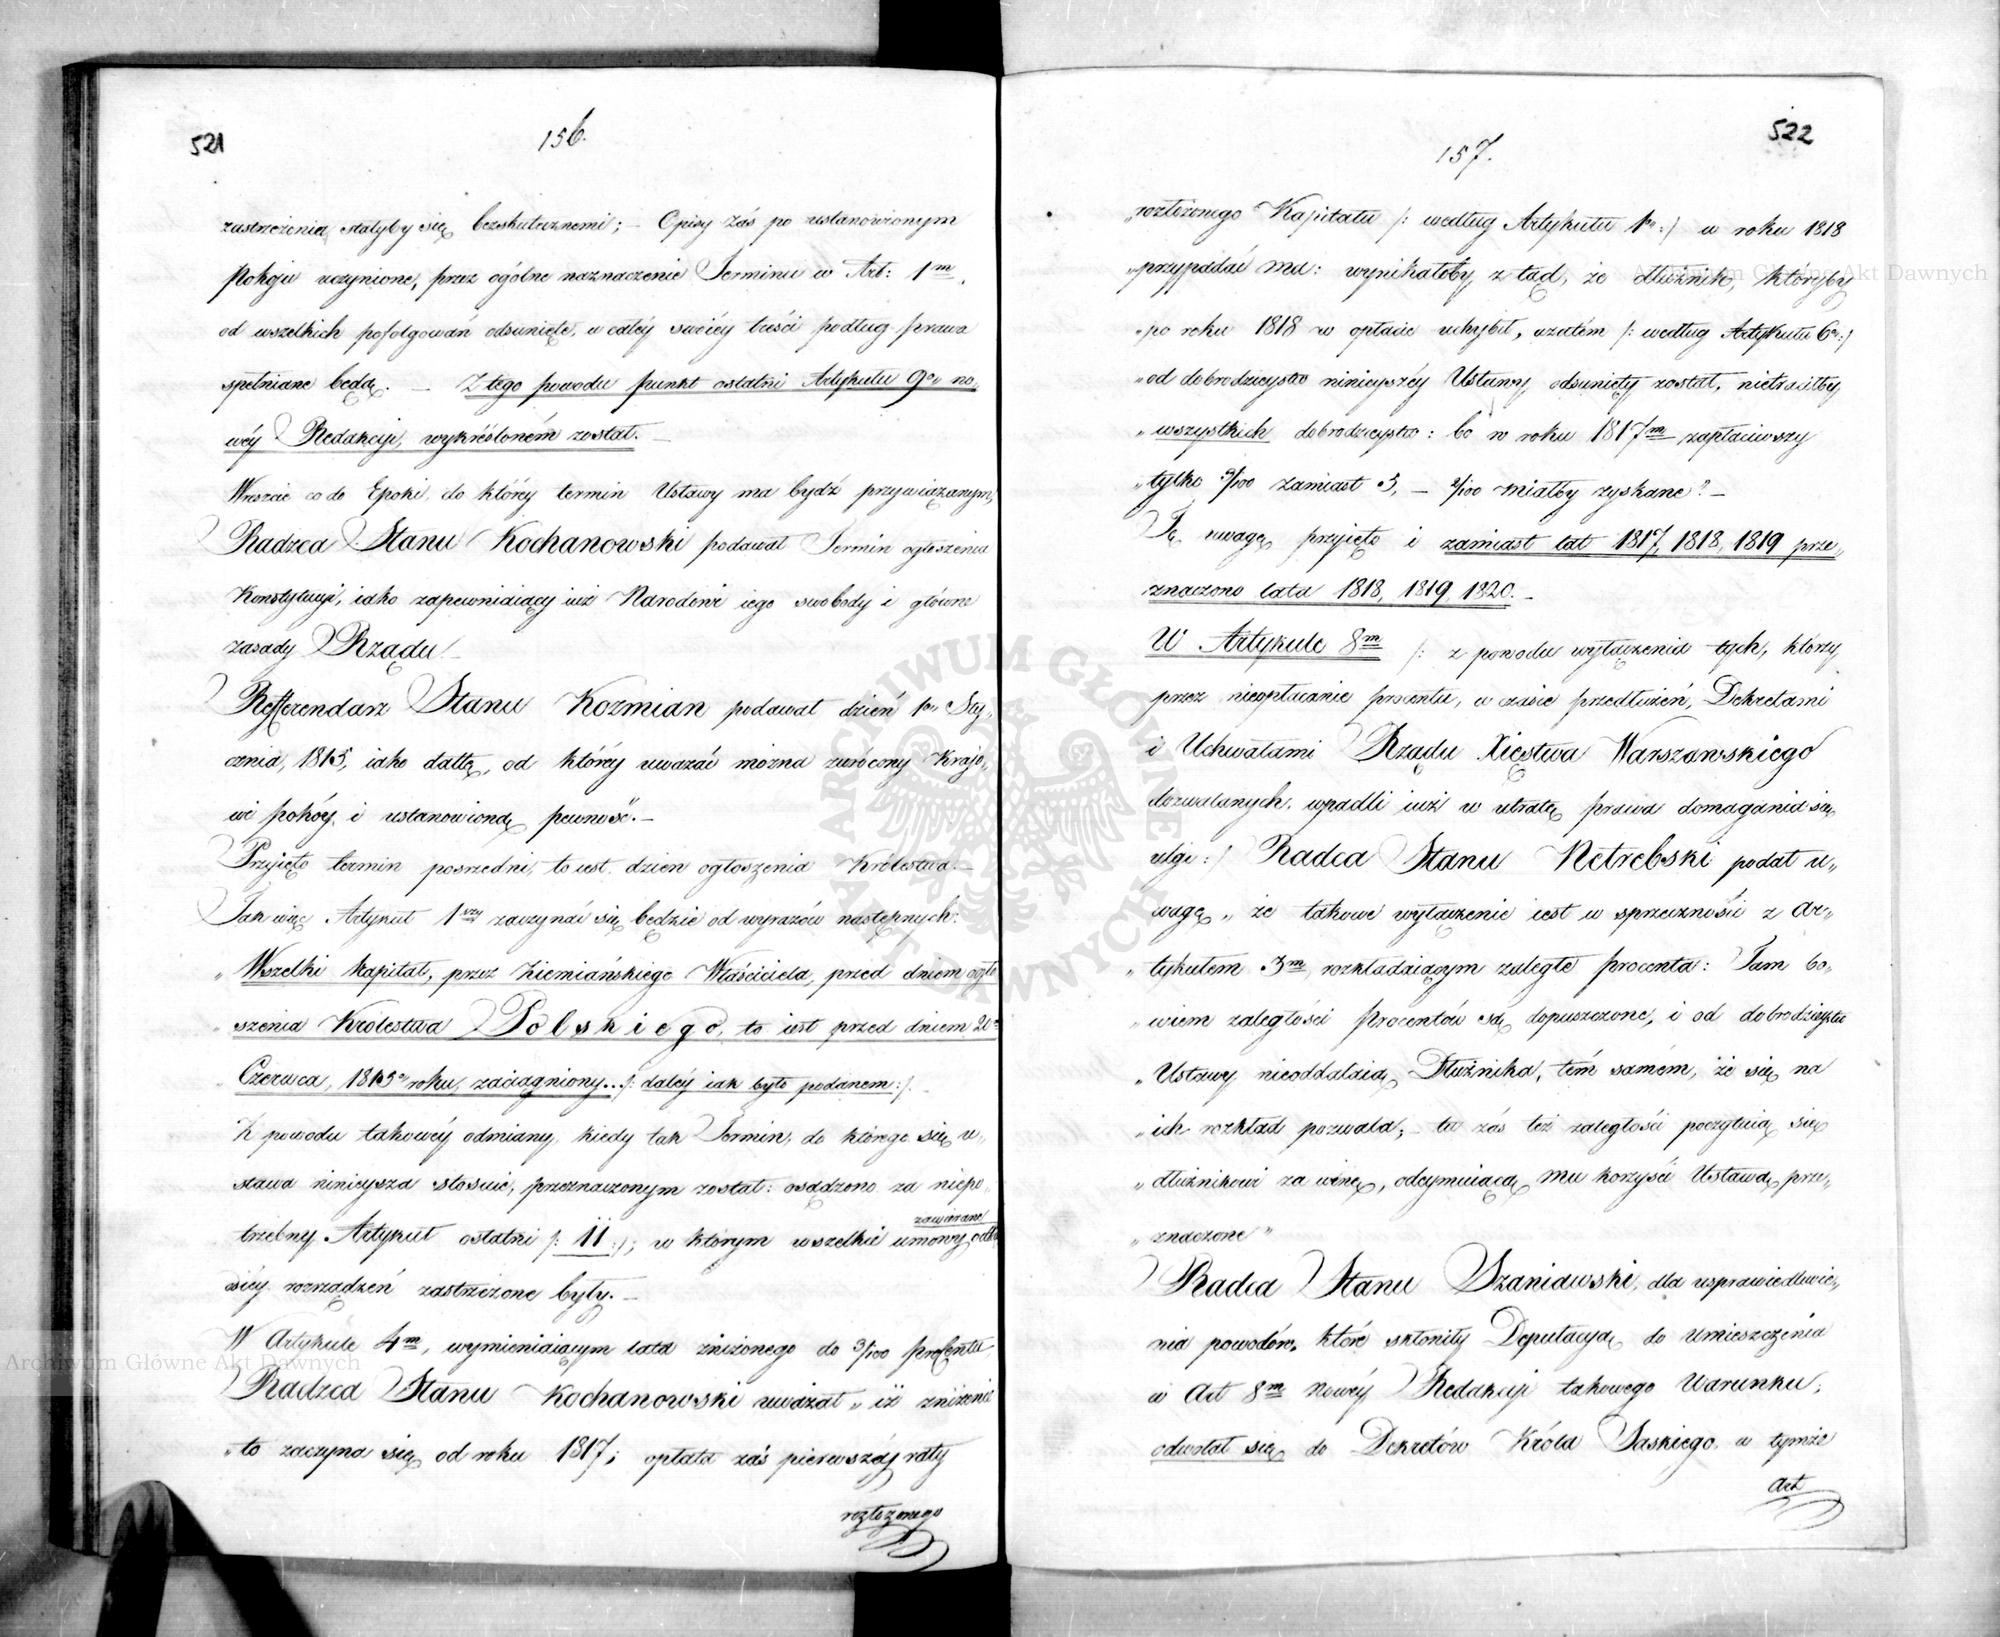 521
156.
zastrzeżenia stałyby się bezskutecznemi; – Opisy zaś po ustanowionym
Pokoju uczynione, przez ogólne naznaczenie Terminu w Art: 1m,
od wszelkich pofolgowań odsunięte, w całéy swoiéy treści podług prawa
spełniane będą. – Z tego powodu punkt ostatni Artykułu 9o no„
wéy Redakcyi, wykréśloném został. –
Wreszcie co do Epoki, do któréy termin Ustawy ma bydź przywiązanym,
Radzca Stanu Kochanowski podawał Termin ogłoszenia
Konstytucyi, iako zapewniaiący iuż Narodowi iego swobody i główne
zasady Rządu. –
Refferendarz Stanu Kozmian podawał dzień 1o Sty„
cznia, 1815, iako dattę, od któréy uważać można zwrócony Krajo„
wi pokóy, i ustanowioną pewność. –
Przyięto termin pośredni, to iest, dzień ogłoszenia Królestwa. –
Jak więc Artykuł 1wszy zaczynać się będzie od wyrazów następnych:
„ Wszelki kapitał, przez Ziemiańskiego Właściciela, przed dniem ogło
„ szenia Królestwa Polskiego, to iest przed dniem 20o
„ Czerwca, 1815o roku, zaciągniony... /: daléy iak było podanem :/. –
Z powodu takowéy odmiany, kiedy tak Termin, do którego się u„
stawa ninieysza stosuie, przeznaczonym został: osądzono za niepo„
trzebny Artykuł ostatni /: 11 :/; w którym wszelkie umowy zawierane
wiéy rozrządzeń zastrzeżone były. –
W Artykule 4m, wymieniaiącym lata zniżonego do 3/100 procentu,
Radzca Stanu Kochanowski uważał „ iż zniżenie
„ to zaczyna się od roku 1817; opłata zaś pierwszéj raty
rozłożonego
522
157.
„rozłożonego Kapitału /: według Artykułu 1o :/ w roku 1818
„przypadać ma: wynikałoby z tąd, że dłużnik, któryby
„po roku 1818 w opłacie uchybił, azatém /: według Artykułu 6o :/
„od dobrodzieystw ninieyszéy Ustawy odsunięty został, nietraciłby
„wszystkich dobrodzieystw: bo w roku 1817m zapłaciwszy
„tylko 3/100 zamiast 5, – 2/100 miałby zyskane? –
Tę uwagę przyięto i zamiast lat 1817, 1818, 1819 prze„
znaczono lata 1818, 1819, 1820. –
W Artykule 8m /: z powodu wyłączenia tych, którzy
przez nieopłacanie procentu, w czasie przedłużeń, Dekretami
i Uchwałami Rządu Xięstwa Warszawskiego
dozwalanych, wpadli iuż w utratę prawa domagania się
ulgi :/ Radca Stanu Netrebski podał u„
wagę „ że takowe wyłączenie iest w sprzeczności z Ar„
„ tykułem 3m, rozkładaiącym zaległe procenta: Tam bo„
„ wiem zaległości Procentów są dopuszczone, i od dobrodzieystw
„ Ustawy nieoddalaią Dłużnika, tém samém, że się na
„ ich rozkład pozwala; – tu zaś też zaległości poczytuią się
„ dłużnikowi za winę, odeymuiącą mu korzyści Ustawą prze„
„ znaczone „
Radca Stanu Szaniawski, dla usprawiedliwie„
nia powodów, które skłoniły Deputacyą do umieszczenia
w Art 8m nowéy Redakcyi takowego Warunku;
odwołał się do Dekretów Króla Saskiego, w tymże
Art